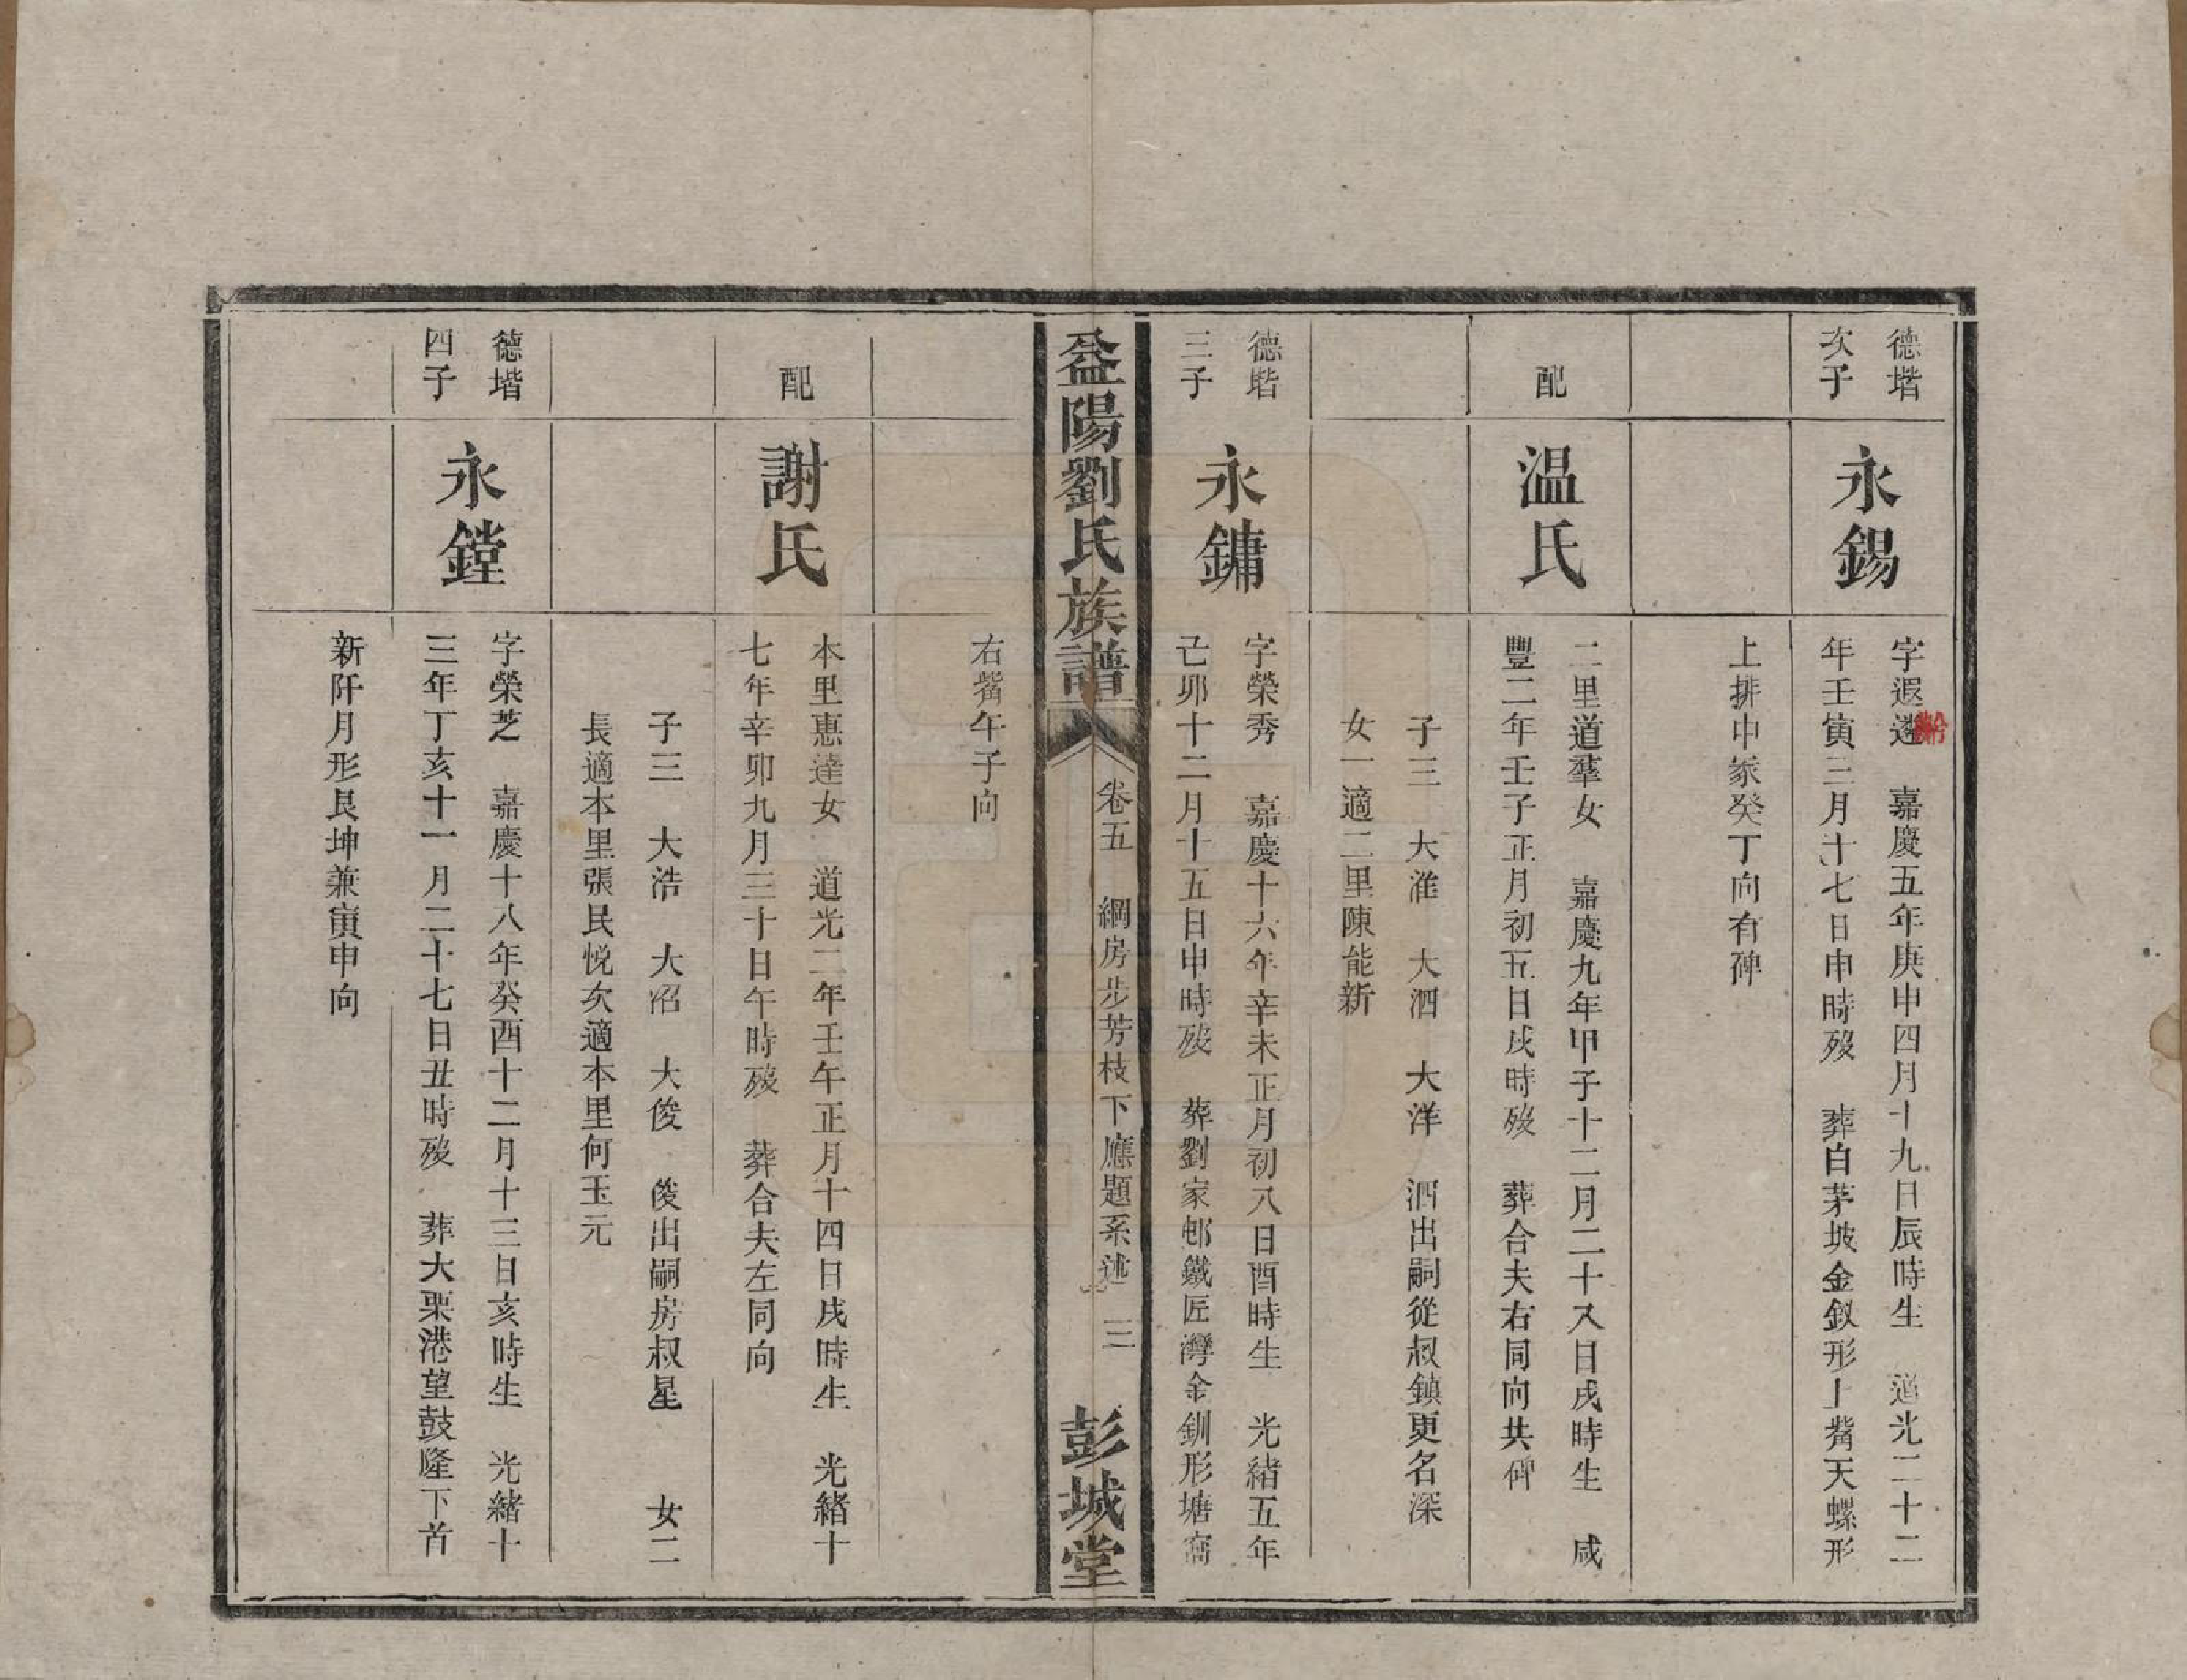 德堦
次子
永錫
字遐遷 嘉慶五年庚申四月十九日辰時生 道光二十二
年壬寅三月十七日申時歿 葬白茅坡金釵形上觜天螺形
上排中冢癸丁向有碑
配
温氏
二里道羣女 嘉慶九年甲子十二月二十又日戌時生 咸
豐二年壬子正月初五日戌時歿 葬合夫右同向共碑
子三 大淮 大泗 大洋 泗出嗣從叔鎮更名深
女一適二里陳能新
德堦
三子
永鏞
字榮秀 嘉慶十六年辛未正月初八日酉時生 光緒五年
己卯十二月十五日申時歿 葬劉家邨鐵匠灣金釧形塘窩
益陽劉氏族譜
卷五 綱房步芳枝下應題系述 三
彭城堂
右觜午子向
配
謝氏
本里惠達女 道光二年壬午正月十四日戌時生 光緒十
七年辛卯九月三十日午時歿 葬合夫左同向
子三 大浩 大沼 大俊 俊出嗣房叔星 女二
長適本里張民悦次適本里何玉元
德堦
四子
永鏜
字榮芝 嘉慶十八年癸酉十二月十三日亥時生 光緒十
三年丁亥十一月二十七日丑時歿 葬大栗港望鼓隆下首
新阡月形艮坤兼寅申向